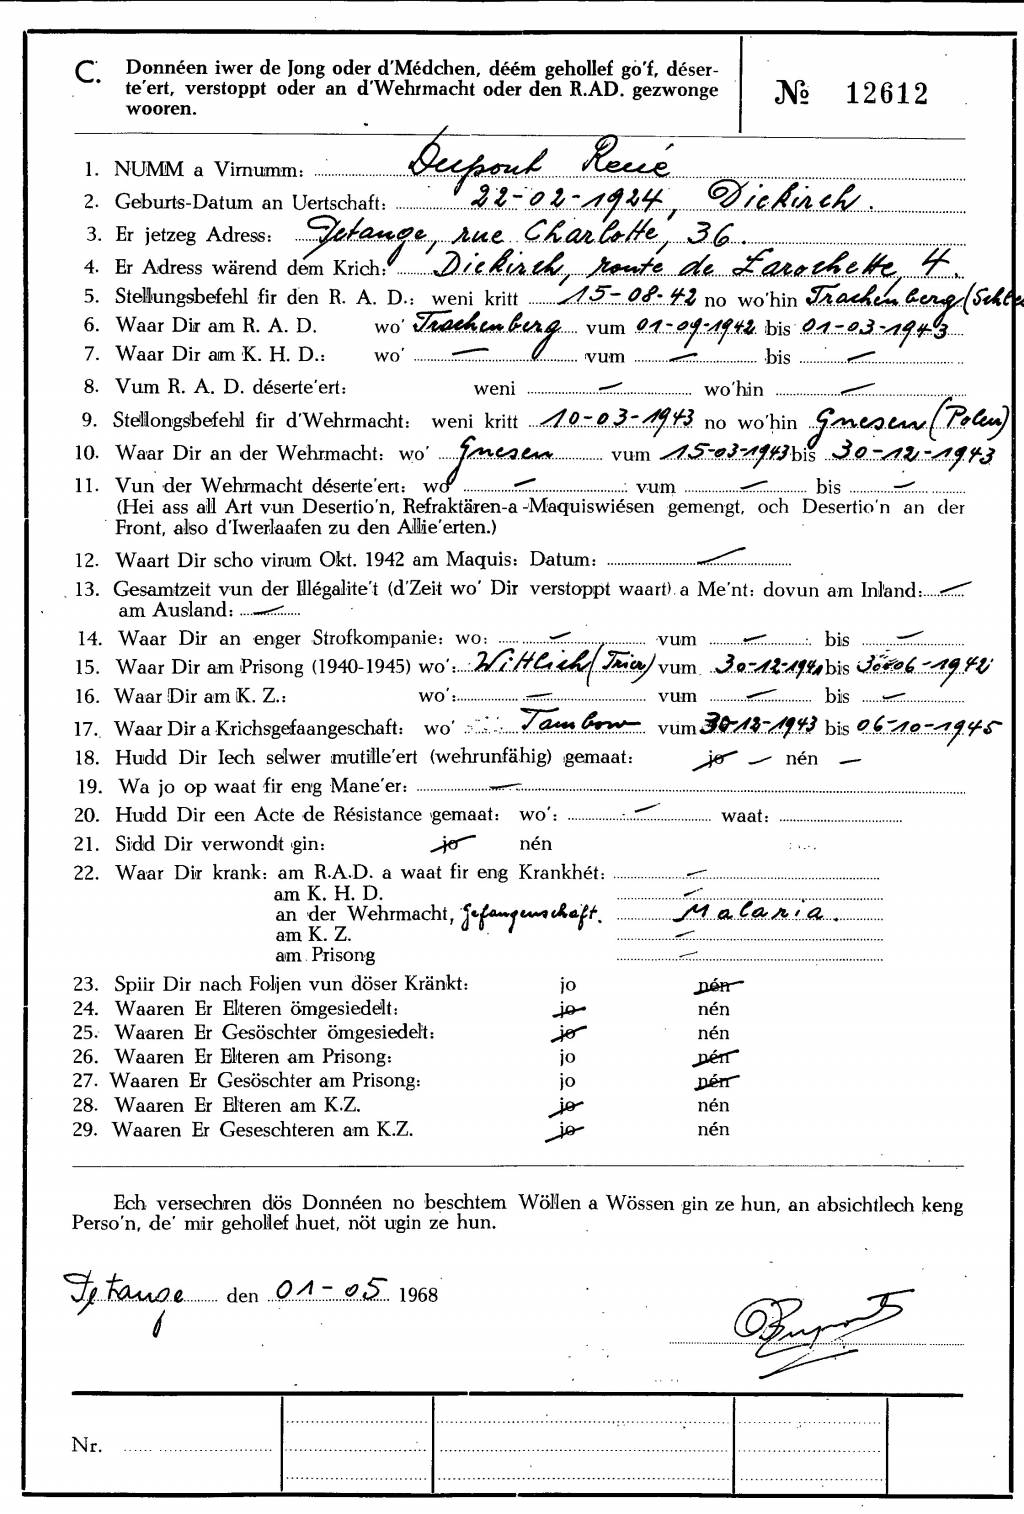 C. Donnéen iwer de Jong oder d'Médchen, déém gehollef go'f, déser-
te'ert, verstoppt oder an d'Wehrmacht oder den R.AD. gezwonge
wooren.
№ 12612
1. NUMM a Virnumm: Dupont René
2. Geburts-Datum an Uertschaft: 22-02-1924, Diekirch.
3. Er jetzeg Adress: Tétange, rue Charlotte, 36.
4. Er Adress wärend dem Krich: Diekirch, route de Larochette, 4.
5. Stellungsbefehl fir den R. A. D.: weni kritt 15-08-42 no wo'hin Trachenberg
6. Waar Dir am R. A. D. wo' Trachenberg vum 01-09-1942 bis 01-03-1943
7. Waar Dir am K. H. D.: wo' — vum — bis —
8. Vum R. A. D. déserte'ert: weni — wo'hin —
9. Stellongsbefehl fir d'Wehrmacht: weni kritt 10-03-1943 no wo'hin Gnesen (Polen)
10. Waar Dir an der Wehrmacht: wo' Gnesen vum 15-03-1943 bis 30-12-1943
11. Vun der Wehrmacht déserte'ert: wo — vum — bis —
(Hei ass all Art vun Desertio'n, Refraktären-a -Maquiswiésen gemengt, och Desertio'n an der
Front, also d'Iwerlaafen zu den Allie'erten.)
12. Waart Dir scho virum Okt. 1942 am Maquis: Datum: —
13. Gesamtzeit vun der Illégalite't (d'Zeit wo' Dir verstoppt waart) a Me'nt: dovun am Inland: —
am Ausland: —
14. Waar Dir an enger Strofkompanie: wo: — vum — bis —
15. Waar Dir am Prisong (1940-1945) wo': Wittlich (Trier) vum 30-12-1941 bis 30-06-1942
16. Waar Dir am K. Z.: wo': — vum — bis —
17. Waar Dir a Krichsgefaangeschaft: wo' Tambow vum 30-12-1943 bis 06-10-1945
18. Hudd Dir Iech selwer mutille'ert (wehrunfähig) gemaat: jo — nén —
19. Wa jo op waat fir eng Mane'er: —
20. Hudd Dir een Acte de Résistance gemaat: wo': — waat:
21. Sidd Dir verwondt gin: jo nén
22. Waar Dir krank: am R.A.D. a waat fir eng Krankhét: —
am K. H. D. —
an der Wehrmacht, Gefangenschaft. Malaria.
am K. Z. —
am Prisong —
23. Spiir Dir nach Foljen vun döser Kränkt: jo nén
24. Waaren Er Elteren ömgesiedelt: jo nén
25. Waaren Er Gesöschter ömgesiedelt: jo nén
26. Waaren Er Elteren am Prisong: jo nén
27. Waaren Er Gesöschter am Prisong: jo nén
28. Waaren Er Elteren am K.Z. jo nén
29. Waaren Er Geseschteren am K.Z. jo nén
Ech versechren dös Donnéen no beschtem Wöllen a Wössen gin ze hun, an absichtlech keng
Perso'n, de' mir gehollef huet, nöt ugin ze hun.
Tétange den 01-05 1968
Dupont
Nr.